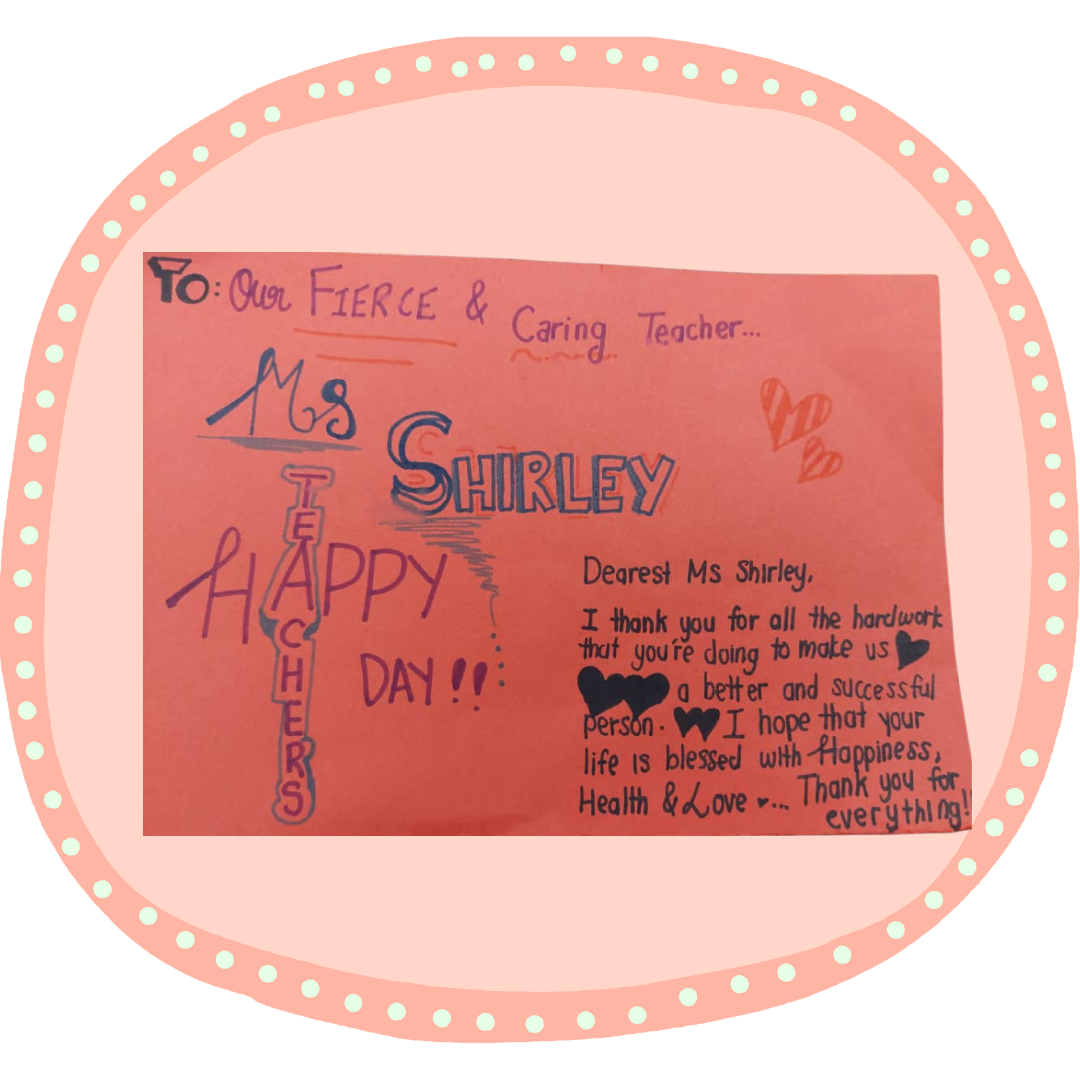 TO: Our FIERCE & Caring Teacher...
Ms
SHIRLEY
TEACHERS
HAPPY
DAY!!
Dearest Ms Shirley,
I thank you for all the hardwork
that you're doing to make us
a better and successful
person. I hope that your
life is blessed with Happiness,
Health & Love ♥... Thank you for
everything!